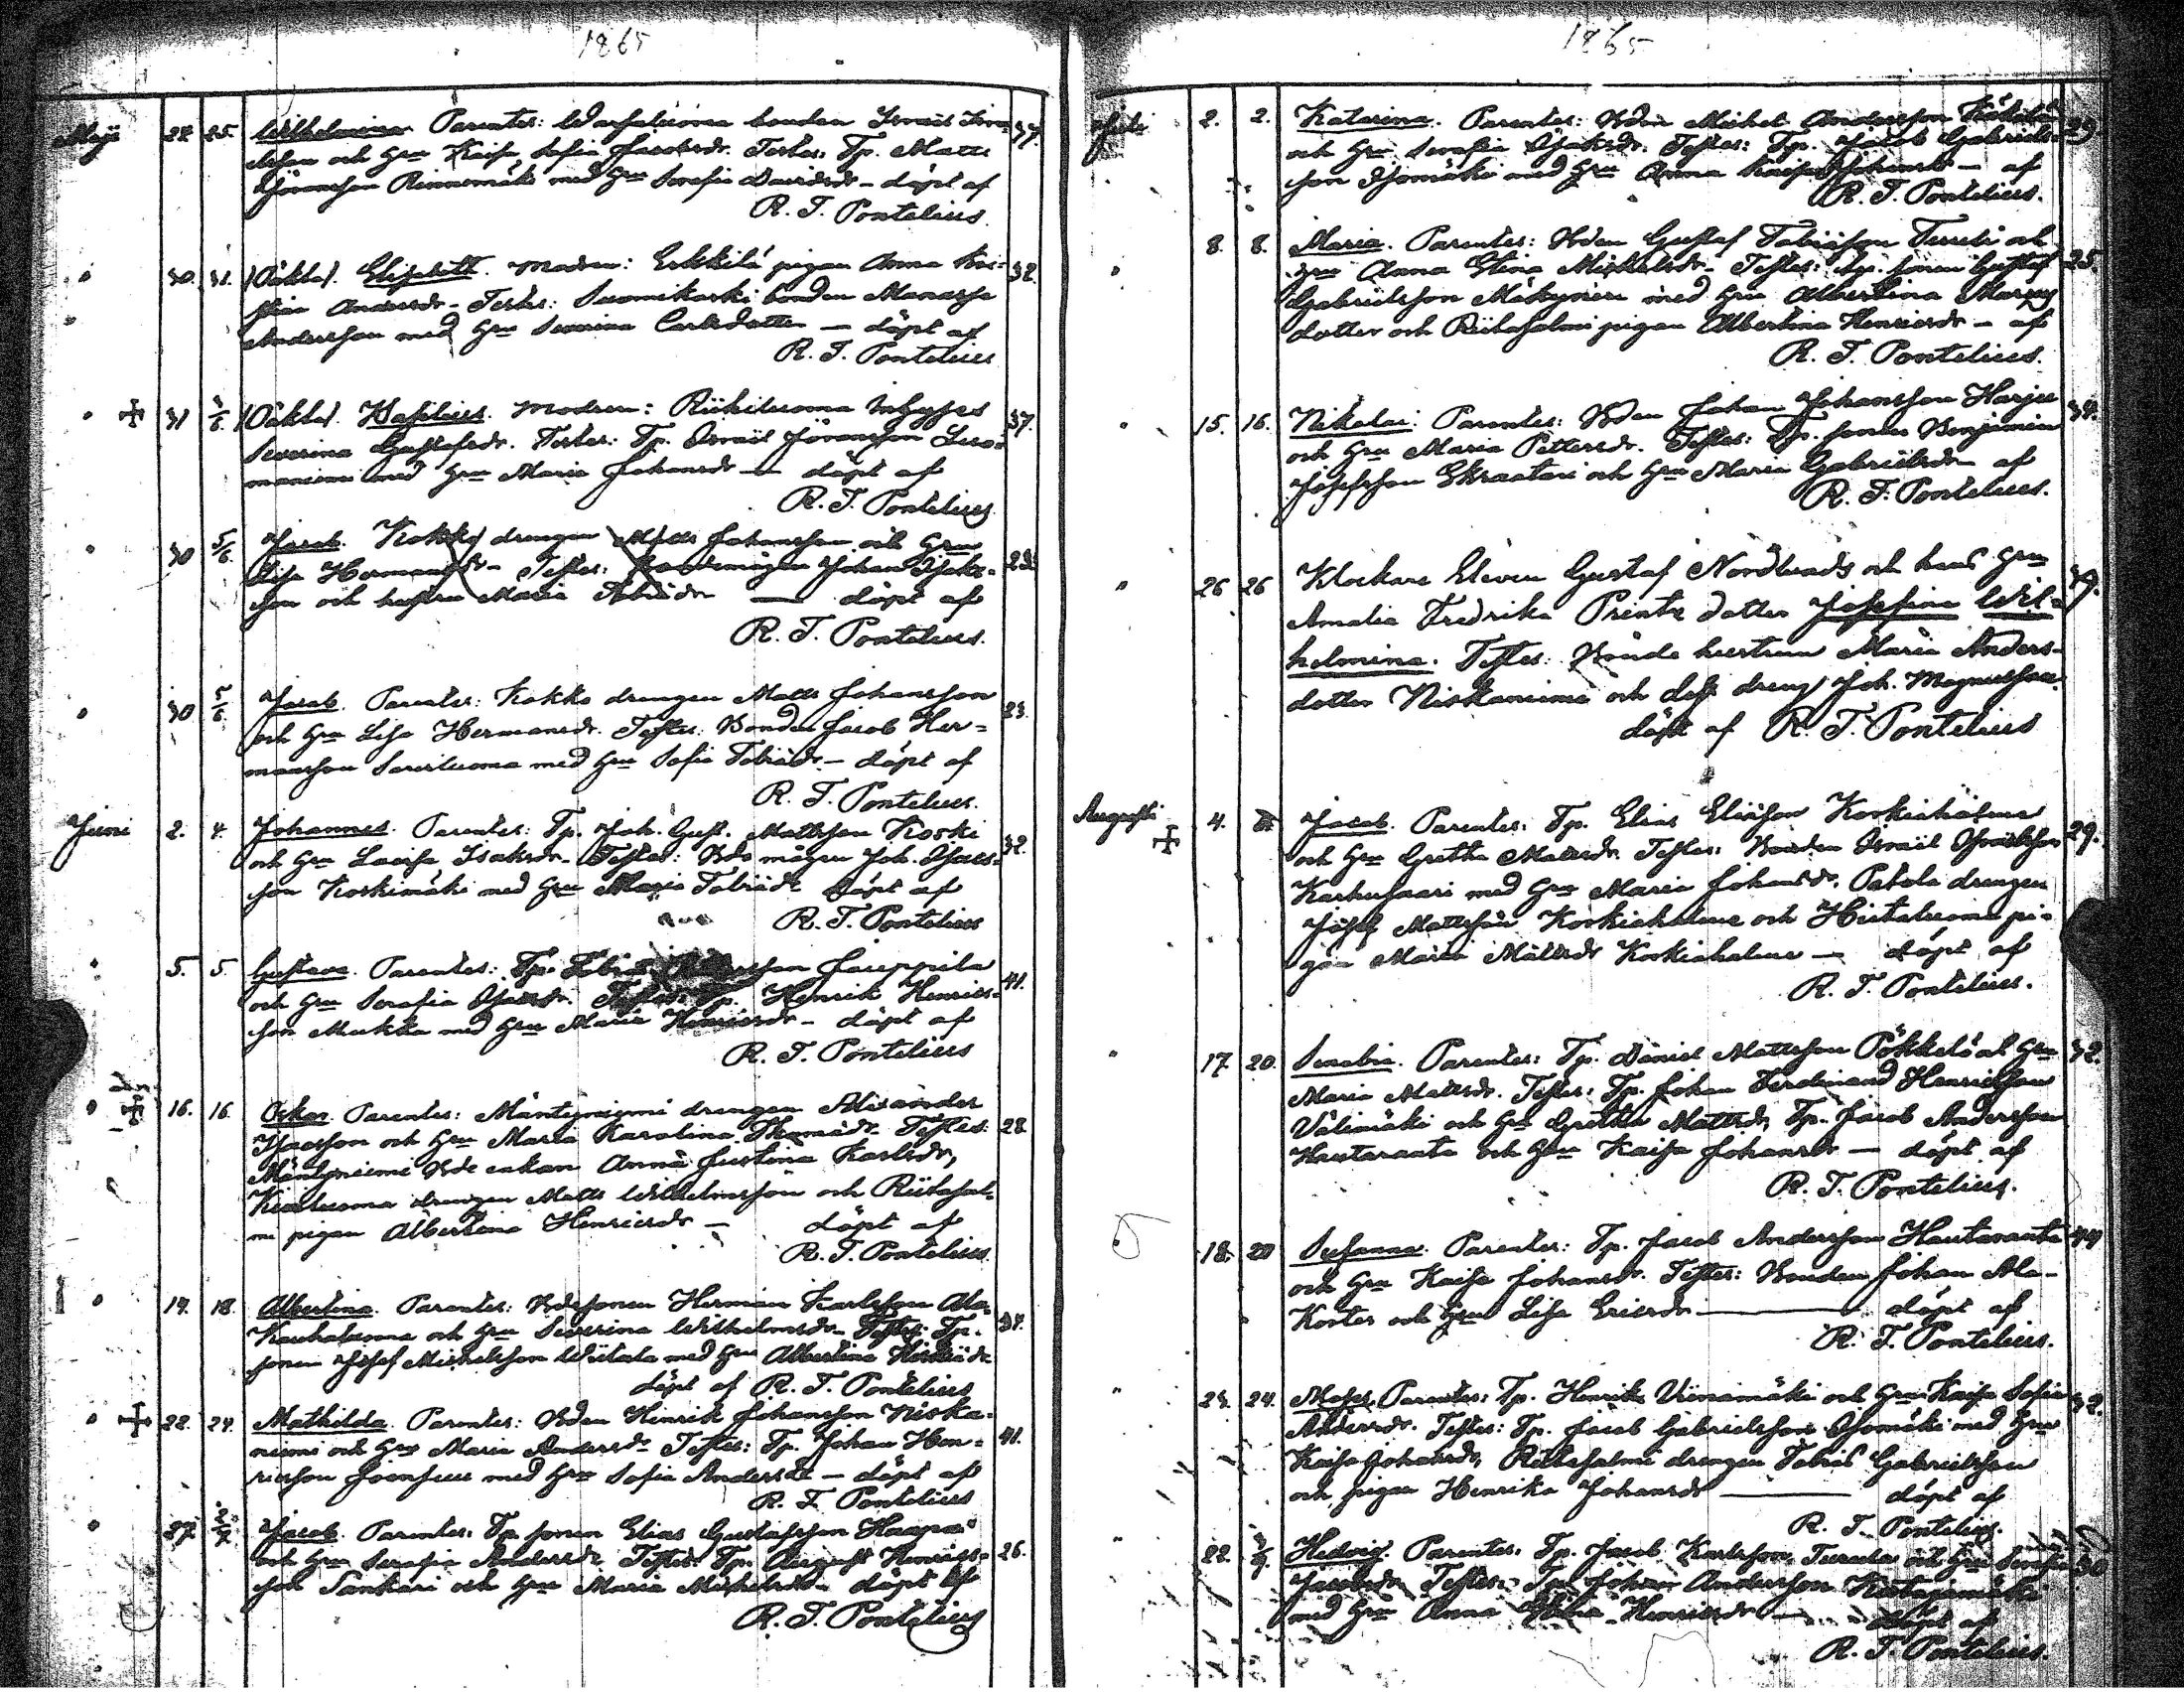 1865
Maji 24. 25. Wilhelmina. Parentes: Warpaluoma bonden Israil
och Hru Kaisa Sofia Jacobsdr. Testes: Tp. Matts 37.
Göransson Rinnemäki med Hru Serafia Davidsdr – döpt af
R. T. Pontelius.
" 30. 31. (Oäkta). Elisabeth. Modren: Erkkilä pigan Anna Kris= 32.
tina Andersdr – Testes: Suomikoski bonden Manasse
Andersson med Hru Severina Carlsdotter – döpt af
R. T. Pontelius
" + 31 3/6 (Oäkta). Modren: Riihiluoma Inhyses 37.
Severina Gustafsdr. Testes: Tp. Israil Göransson Luo=
maniemi med Hru Maria Johansdr – döpt af
R. T. Pontelius
" 30 5/6 Jacob. Kokko drengen Matts Johansson och Hru
Lisa Hermansdr – Testes: Johan Isaks= 23.
son och hustru Maria Tobiädr – döpt af
R. T. Pontelius.
" 30 5/6 Jacob. Parentes: Kokko drengen Matts Johansson
och Hru Lisa Hermansdr. Testes: Bonden Jacob Her= 23.
mansson Saariluoma med Hru Sofia Tobiädr – döpt af
R. T. Pontelius.
Juni 2. 4. Johannes. Parentes: Tp. Joh. Gust. Mattsson Koski 32.
och Hru Lovisa Isaksdr – Testes: Bde mågen Joh. Isaks=
son Korkimäki med Hru Maria Tobiädr döpt af
R. T. Pontelius
" 5. 5. Gustava. Parentes: Tp. Tobias Jouppila
och Hru Serafia Isaksdr. Testes: Tp. Henrik Henrics= 41.
son Mukka med Hru Maria Henricsdr – döpt af
R. T. Pontelius
" + 16. 16 Oskar. Parentes: Mäntyniemi drengen Alexander
Isacsson och Hru Maria Karolina Thomädr Testes: 28
Mäntyniemi Bde enkan Anna Justina Karlsdr,
drengen Matts Wilhelmsson och Riitasal=
mi pigan Albertina Henricsdr – döpt af
R. T. Pontelius.
" 17. 18. Albertina. Parentes: Bdesonen Herman Karlsson Ala=
Kauhaluoma och Hru Severina Wilhelmsdr – Testes: Tp. 34.
sonen Josef Michelsson Wiitala med Hru Albertina
döpt af R. T. Pontelius
" + 22. 24. Mathilda. Parentes: Bden Henrik Johansson Niska=
niemi och Hru Maria Andersdr Testes: Tp. Johan Hen= 41.
ricsson Joensuu med Hru Sofia Andersdr – döpt af
R. T. Pontelius
" 27. 2/7 Jacob. Parentes: Tp. sonen Elias Gustafsson Haapa
och Hru Serafia Andersdr Testes: Tp. August Henrics= 26.
son Sankari och Hru Maria Michelsdr – döpt af
R. T. Pontelius
1865
Juli 2. 2. Katarina. Parentes: Bden Michel Andersson Kökkilä 29
och Hru Serafia Isaksdr. Testes: Tp. Jacob Gabriels=
son Isomäki med Hru Anna Kaisa Johansdr – af
R. T. Pontelius.
" 8. 8. Maria. Parentes: Bden Gustaf Tobiäson Tureti och
Hru Anna Stina Michelsdr – Testes: Tp. sonen Gustaf 25.
Gabrielsson Mäkynen med Hru Albertina Marcus
dotter och Riitasalmi pigan Albertina Henricsdr – af
R. T. Pontelius.
" 15. 16. Nikolai. Parentes: Bden Johan Johansson Harju 34.
och Hru Maria Pettersdr. Testes: Tp. sonen Benjamin
Josefsson Skraatari och Hru Maria Gabrielsdr af
R. T. Pontelius.
" 26 26 Klockare Eleven Gustaf Nordlunds och hans Hru
Amalia Fredrika Printz dotter Josefina Wil= 39.
helmina. Testes: Bonde hustrun Maria Anders=
dotter Niskaniemi och dess dreng Joh. Magnusson.
döpt af R. T. Pontelius
Augusti + 4. Jacob. Parentes: Tp. Elias Eliäson Korkiakalma
och Hru Gretha Mattsdr. Testes: Bonden Israil Israelsson 29.
Karhusaari med Hru Maria Johansdr, Patola drengen
Josef Mattsson Korkiakalma och Hietaluoma pi=
gan Maria Mattsdr Korkiakalma – döpt af
R. T. Pontelius.
" 17. 20. Senabia. Parentes: Tp. Daniel Mattsson Pökkelä och Hru 32.
Maria Mattsdr. Testes: Tp. Johan Ferdinand Henricsson
Välimäki och Hru Gretha Mattsdr, Tp. Jacob Andersson
Hautaranta och Hru Kaisa Johansdr – döpt af
R. T. Pontelius.
18. 20 Susanna. Parentes: Tp. Jacob Andersson Hautaranta 44
och Hru Kaisa Johansdr. Testes: Bonden Johan Ala=
Korte och Hru Lisa Ericsdr – döpt af
R. T. Pontelius.
" 23. 24. Moses. Parentes: Tp. Henrik Viinamäki och Hru Kaisa Sofia 32.
Andersdr. Testes: Tp. Jacob Gabrielsson Isomäki med Hru
Kaisa Johansdr, Riitasalmi drengen Tobias Gabrielsson
och pigan Henrika Johansdr – döpt af
R. T. Pontelius.
" 22. 3/9. Hedvig. Parentes: Tp. Jacob Karlsson Turula och Hru Serafia 30
Jacobsdr Testes: Tp. Johan Andersson
med Hru Anna Henricsdr – döpt af
R. T. Pontelius.